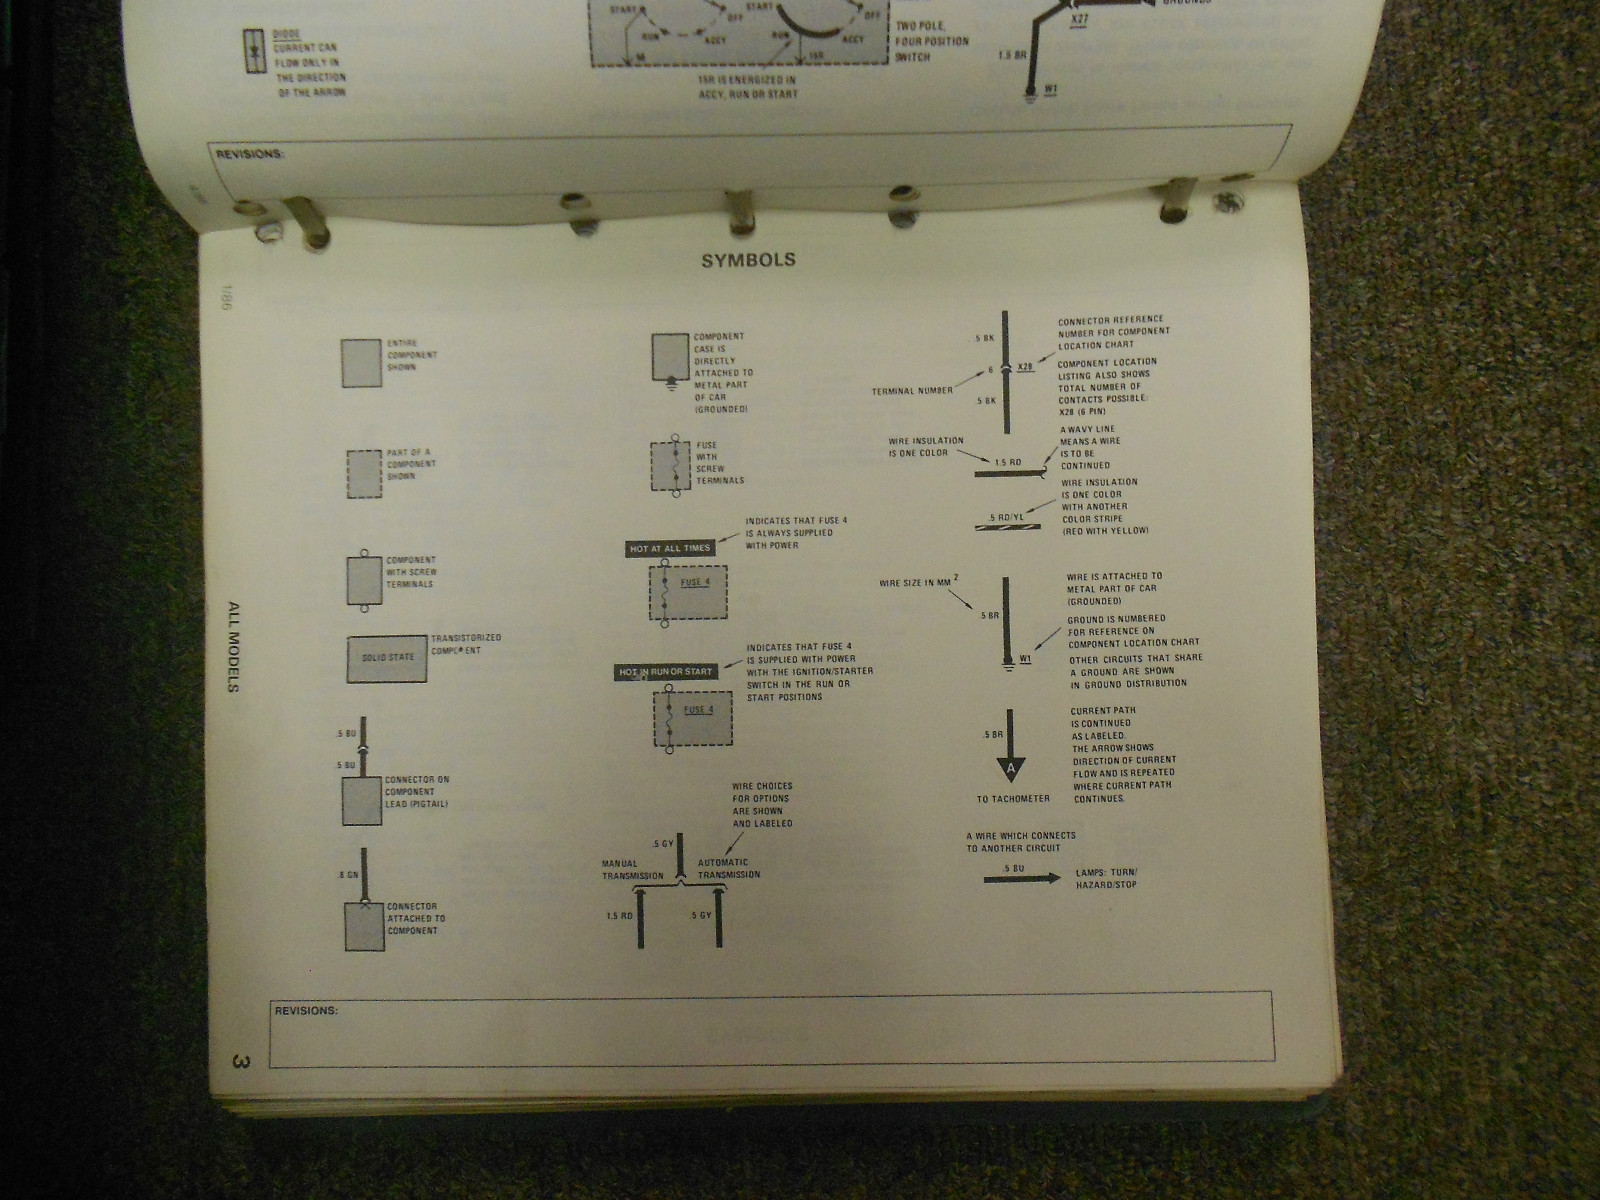 DIODE
CURRENT CAN
FLOW ONLY IN
THE DIRECTION
OF THE ARROW
START
OFF
RUN
ACCY
START
OFF
RUN
ACCY
15R
15R IS ENERGIZED IN
ACCY, RUN OR START
TWO POLE,
FOUR POSITION
SWITCH
GROUNDS
X27
1.5 BR
W1
REVISIONS:
SYMBOLS
1/86
ALL MODELS
3
ENTIRE
COMPONENT
SHOWN
PART OF A
COMPONENT
SHOWN
COMPONENT
WITH SCREW
TERMINALS
SOLID STATE
TRANSISTORIZED
COMPONENT
.5 BU
.5 BU
CONNECTOR ON
COMPONENT
LEAD (PIGTAIL)
.8 GN
CONNECTOR
ATTACHED TO
COMPONENT
COMPONENT
CASE IS
DIRECTLY
ATTACHED TO
METAL PART
OF CAR
(GROUNDED)
FUSE
WITH
SCREW
TERMINALS
INDICATES THAT FUSE 4
IS ALWAYS SUPPLIED
WITH POWER
HOT AT ALL TIMES
FUSE 4
INDICATES THAT FUSE 4
IS SUPPLIED WITH POWER
WITH THE IGNITION/STARTER
SWITCH IN THE RUN OR
START POSITIONS
HOT IN RUN OR START
FUSE 4
WIRE CHOICES
FOR OPTIONS
ARE SHOWN
AND LABELED
.5 GY
MANUAL
TRANSMISSION
AUTOMATIC
TRANSMISSION
1.5 RD
.5 GY
.5 BK
6
X28
.5 BK
TERMINAL NUMBER
CONNECTOR REFERENCE
NUMBER FOR COMPONENT
LOCATION CHART
COMPONENT LOCATION
LISTING ALSO SHOWS
TOTAL NUMBER OF
CONTACTS POSSIBLE:
X28 (6 PIN)
WIRE INSULATION
IS ONE COLOR
1.5 RD
A WAVY LINE
MEANS A WIRE
IS TO BE
CONTINUED
.5 RD/YL
WIRE INSULATION
IS ONE COLOR
WITH ANOTHER
COLOR STRIPE
(RED WITH YELLOW)
WIRE SIZE IN MM 2
.5 BR
W1
WIRE IS ATTACHED TO
METAL PART OF CAR
(GROUNDED)
GROUND IS NUMBERED
FOR REFERENCE ON
COMPONENT LOCATION CHART
OTHER CIRCUITS THAT SHARE
A GROUND ARE SHOWN
IN GROUND DISTRIBUTION
.5 BR
A
TO TACHOMETER
CURRENT PATH
IS CONTINUED
AS LABELED.
THE ARROW SHOWS
DIRECTION OF CURRENT
FLOW AND IS REPEATED
WHERE CURRENT PATH
CONTINUES.
A WIRE WHICH CONNECTS
TO ANOTHER CIRCUIT
.5 BU
LAMPS: TURN/
HAZARD/STOP
REVISIONS: